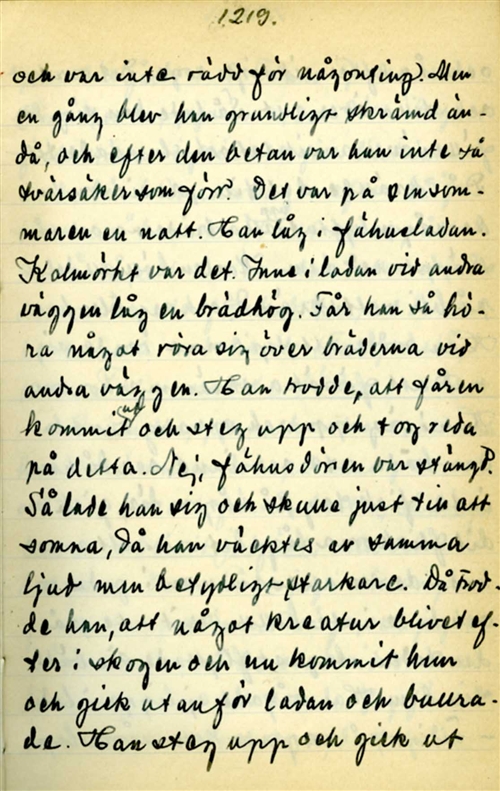 1219.
och var inte rädd för någonting. Men
en gång blev han grundligt skrämd än-
då, och efter den betan var han inte så
tvärsäker som förr. Det var på sensom-
maren en natt. Han låg i fähusladan.
Kolmörkt var det. Inne i ladan vid andra
väggen låg en brädhög. Får han så hö-
ra något röra sig över bräderna vid
andra väggen. Han trodde, att fåren
kommit ut och steg upp och tog reda
på detta. Nej, fähusdörren var stängd.
Så lade han sig och skulle just till att
somna, då han väcktes av samma
ljud men betydligt starkare. Då trod-
de han, att något kreatur blivet ef-
ter i skogen och nu kommit hem
och gick utanför ladan och bullra-
de. Han steg upp och gick ut